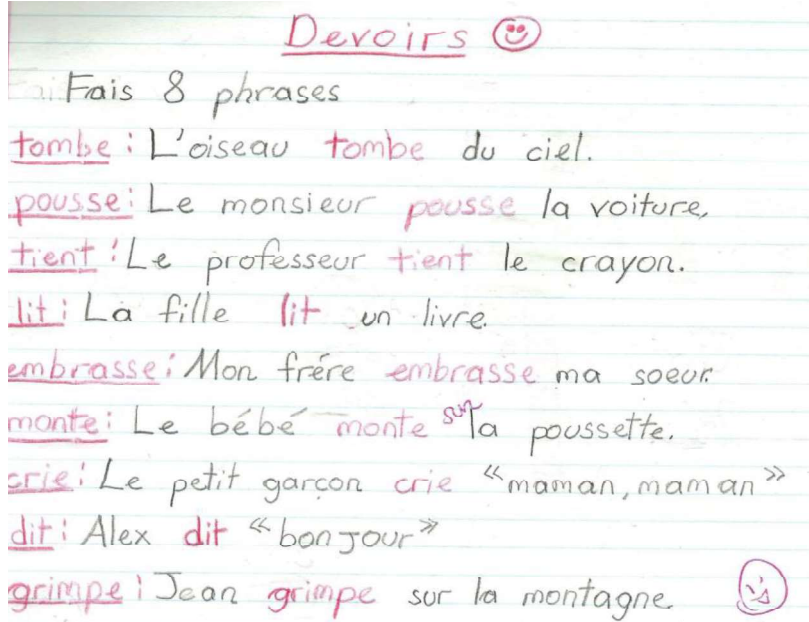 Devoirs
Fais 8 phrases
tombe : L'oiseau tombe du ciel.
pousse : Le monsieur pousse la voiture.
tient : Le professeur tient le crayon.
lit : La fille lit un livre.
embrasse : Mon frére embrasse ma soeur.
monte : Le bébé monte sur la poussette.
crie : Le petit garçon crie «maman, maman»
dit : Alex dit «bonjour»
grimpe : Jean grimpe sur la montagne.